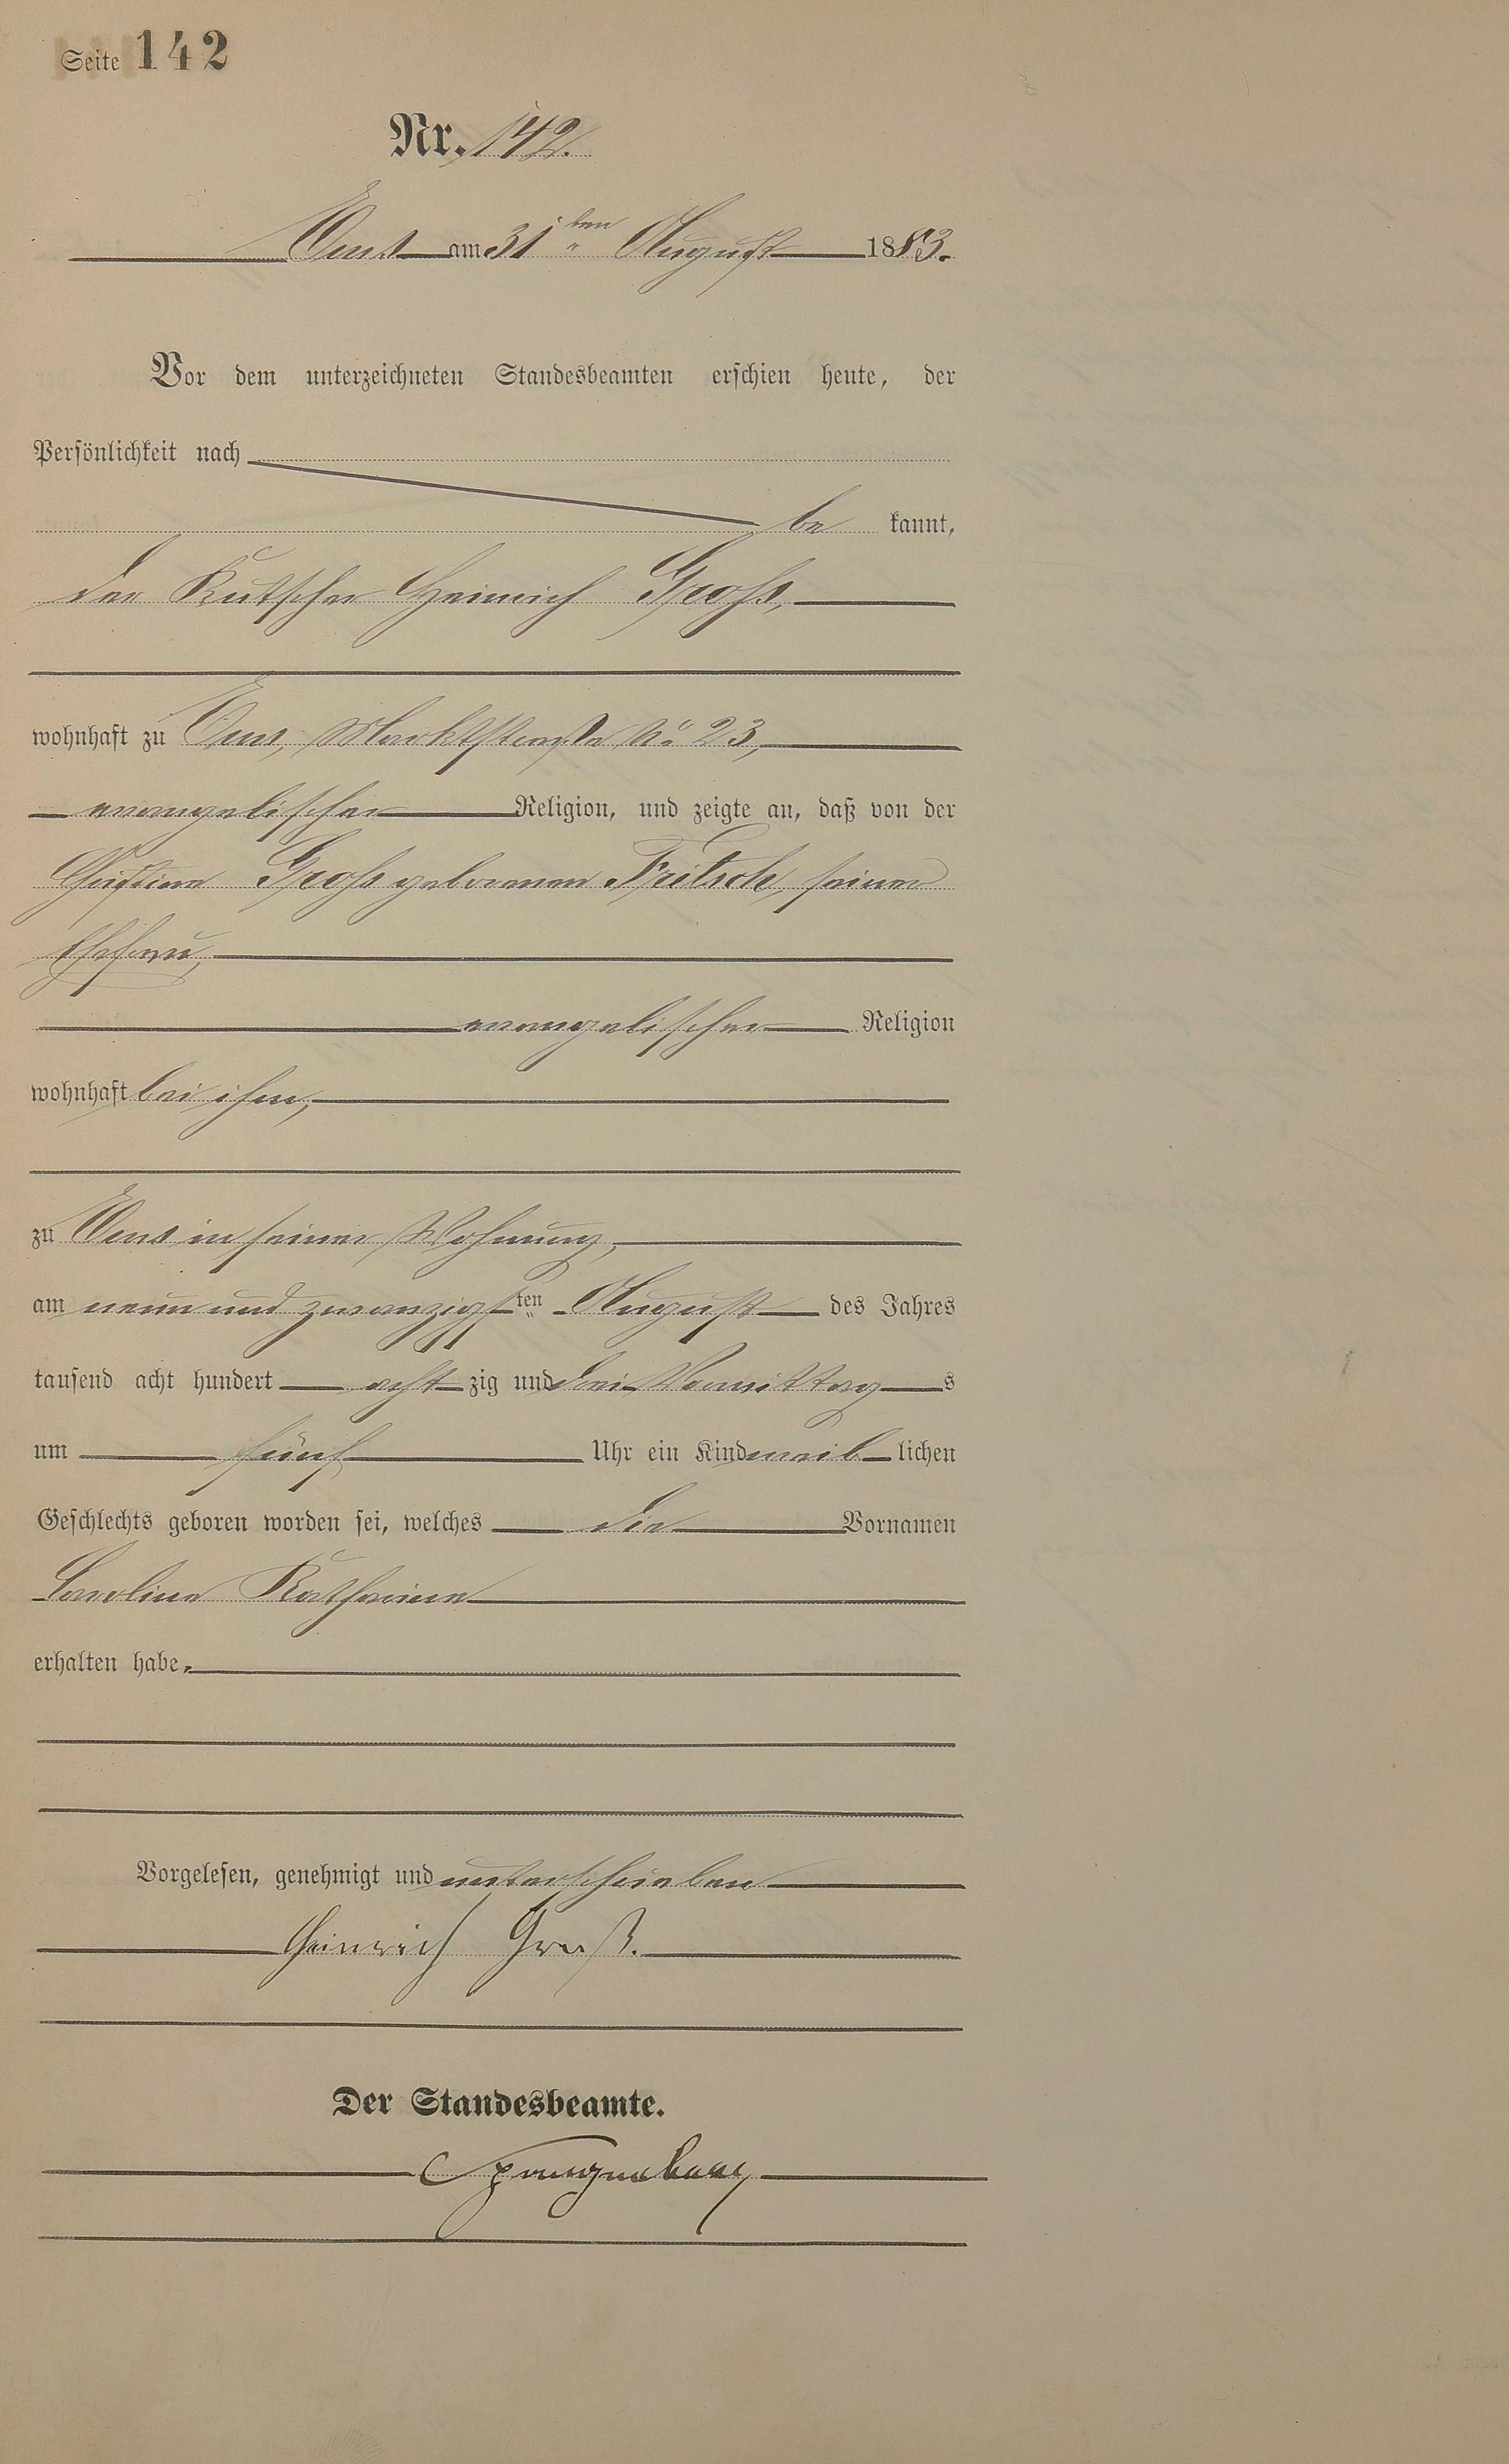 Seite 142
Nr. 142.
Ems am 31ten August 1883.
Vor dem unterzeichneten Standesbeamten erschien heute, der
Persönlichkeit nach
be kannt,
der Kutscher Heinrich Groß,
wohnhaft zu Ems, Marktstraße No 23,
evangelischer Religion, und zeigte an, daß von der
Christine Groß geborenen Fritsch, seiner
Ehefrau,
evangelischer Religion
wohnhaft bei ihm,
zu Ems in seiner Wohnung,
am neun und zwanzigsten August des Jahres
tausend acht hundert acht zig und drei Vormittag s
um fünf Uhr ein Kind weib lichen
Geschlechts geboren worden sei, welches die Vornamen
Caroline Katharina
erhalten habe.
Vorgelesen, genehmigt und unterschrieben
Heinrich Groß.
Der Standesbeamte.
Spangenberg